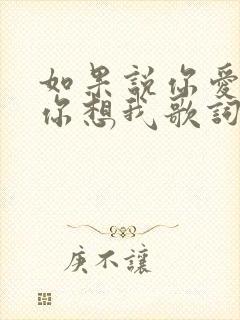 如果說你愛
你想我歌詞
庚不讓